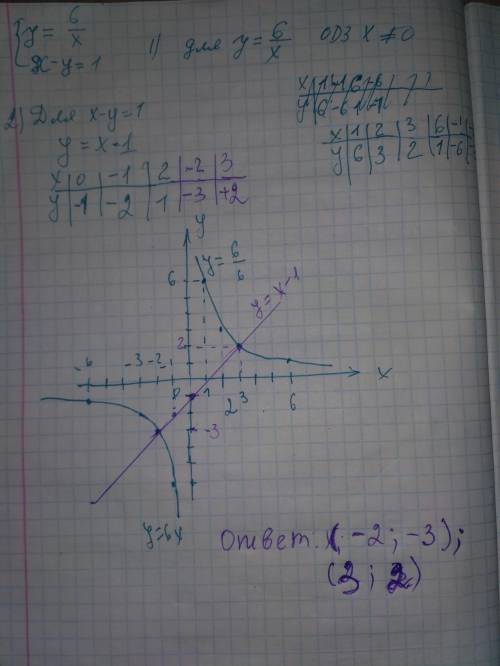 {y = 6/x
x - y = 1
1) для y = 6/x ОДЗ x ≠ 0
2) Для x-y=1
y = x-1
x | 0 | -1 | 2 | -2 | 3
y | -1 | -2 | 1 | -3 | +2
x | 1 | 2 | 3 | 6 | -1
y | 6 | 3 | 2 | 1 | -6
y
y = 6/6
6
y = x-1
2
-6 -3 -2
0 1 2 3 6 x
-3
y=6x
Ответ: (-2; -3);
(3; 2)